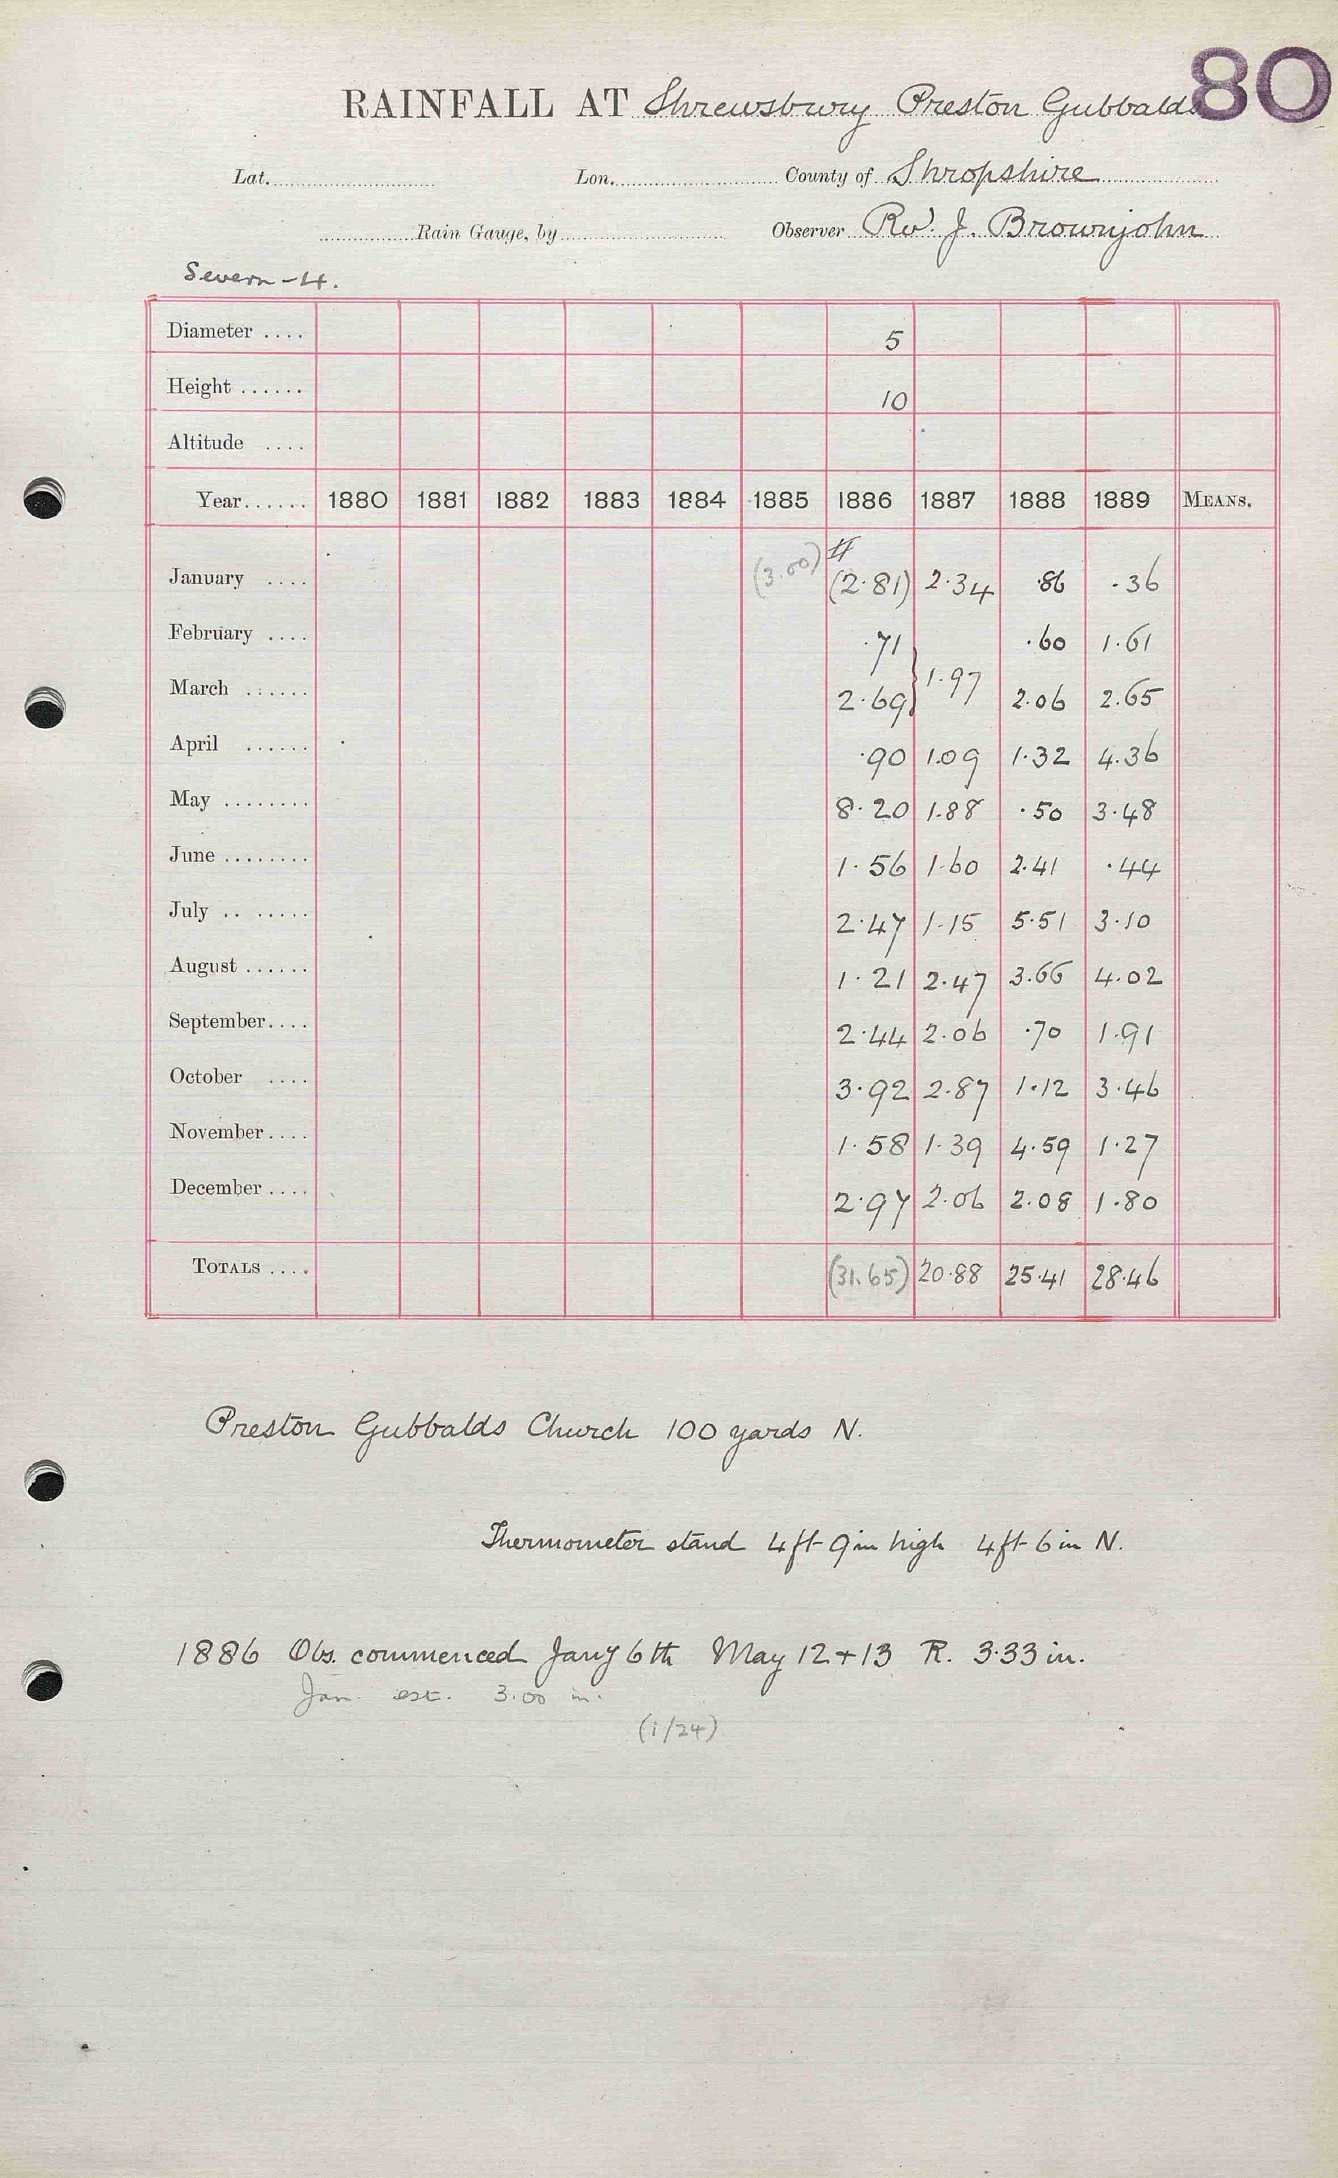 80
RAINFALL AT Shrewsbury Preston Gubbalds
Lat. Lon. County of Shropshire
Rain Gauge, by Observer Rev. J. Brownjohn
Severn - 4.
Diameter .... 5
Height ...... 10
Altitude ....
Year...... 1880 1881 1882 1883 1884 1885 1886 1887 1888 1889 MEANS.
January .... (3.00) # (2.81) 2.34 .86 .36
February .... .71 } 1.97 .60 1.61
March ...... 2.69 2.06 2.65
April ...... .90 1.09 1.32 4.36
May ........ 8.20 1.88 .50 3.48
June ........ 1.56 1.60 2.41 .44
July .. ..... 2.47 1.15 5.51 3.10
August ...... 1.21 2.47 3.66 4.02
September.... 2.44 2.06 .70 1.91
October .... 3.92 2.87 1.12 3.46
November.... 1.58 1.39 4.59 1.27
December.... 2.97 2.06 2.08 1.80
TOTALS .... (31.65) 20.88 25.41 28.46
Preston Gubbalds Church 100 yards N.
Thermometer stand 4ft 9in high 4ft 6in N.
1886 Obs. commenced Jany 6th May 12+13 R. 3.33 in.
Jan. est. 3.00 in.
(i/24)